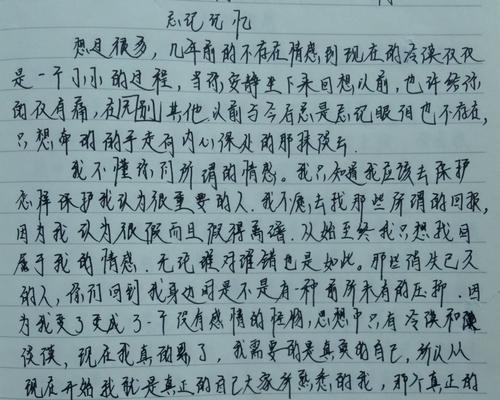 忘记记忆
想过很多，几年前的不存在情感到现在的冷漠仅仅
是一个小小的过程，当你安静坐下来回想以前，也许给你
的仅有痛，在回到其他以前与今后总是忘记眼泪也不存在，
只想牵的的手走存内心深处的那抹淡去
我不懂你们所谓的情感。我只知道我应该去保护
怎样保护我认为很重要的人，我不愿去找那些所谓的回报，
因为我认为很假而且假得离谱，从始至终我只想找回
属于我的情感，无论谁对谁错也是如此。那些消失已久
的人，你们回到我身边问是不是有一种前所未有的压抑，因
为我变了变成了一个没有感情的怪物，思想中只有冷漠和
淡漠，现在我真的累了，我需要的是真实的自己，所以从
现在开始我就是真正的自己大家所熟悉的我，那个真正的